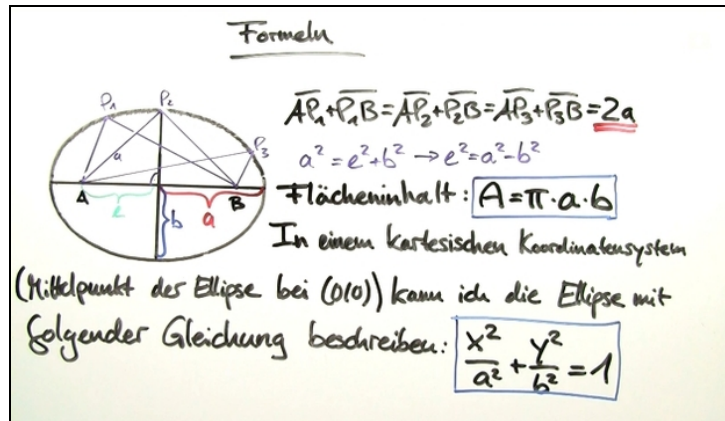 Formeln
P₁ P₂ P₃
a
A e b a B
AP₁+P₁B=AP₂+P₂B=AP₃+P₃B=2a
a²=e²+b² →e²=a²-b²
Flächeninhalt: A=π·a·b
In einem kartesischen Koordinatensystem
(Mittelpunkt der Ellipse bei (0|0)) kann ich die Ellipse mit
folgender Gleichung beschreiben: x²/a²+y²/b²=1